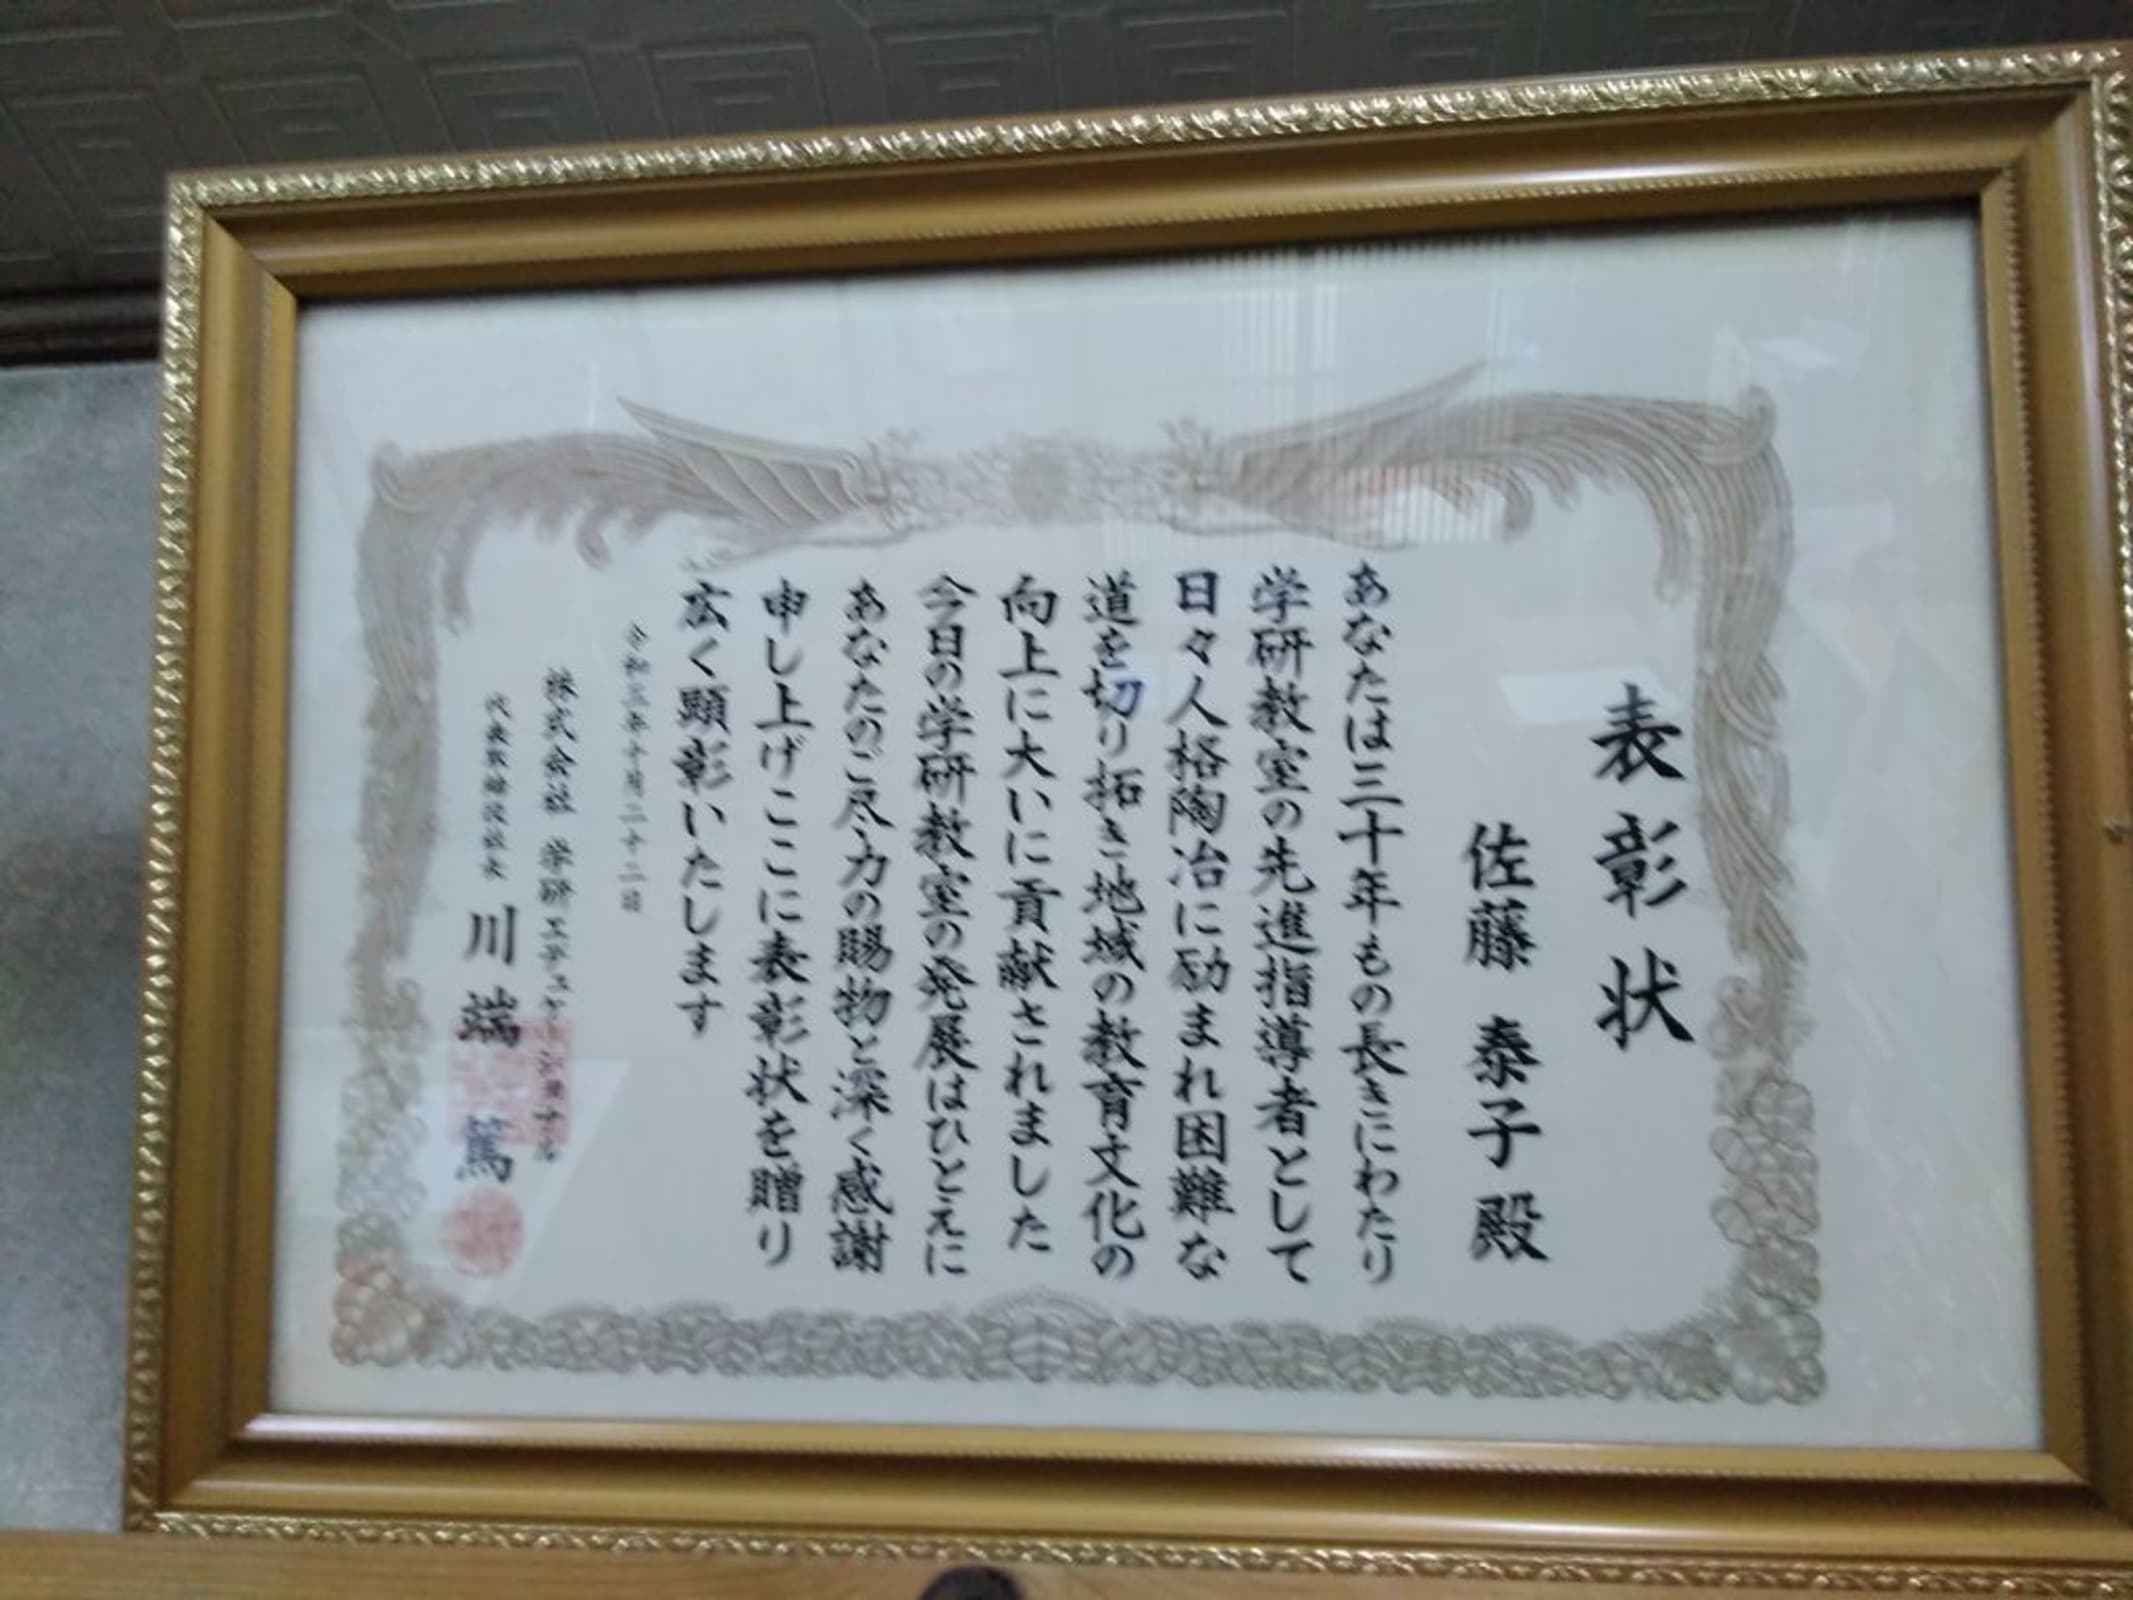 表彰状
佐藤 泰子 殿
あなたは三十年もの長きにわたり
学研教室の先進指導者として
日々人格陶冶に励まれ困難な
道を切り拓き地域の教育文化の
向上に大いに貢献されました
今日の学研教室の発展はひとえに
あなたのご尽力の賜物と深く感謝
申し上げここに表彰状を贈り
広く顕彰いたします
令和三年十月二十二日
株式会社 学研エデュケーショナル
代表取締役社長 川端 篤